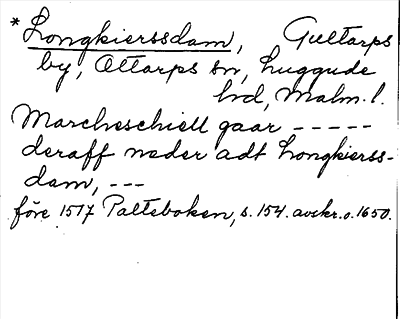 * Longkierssdam, Gultarps
by, Ottarps sn, Luggude
hd, Malm. l.
Marcheschiell gaar - - - - -
deraff neder adt Longkierss-
dam, - - -
före 1517 Palteboken, s. 154. avskr. o. 1650.